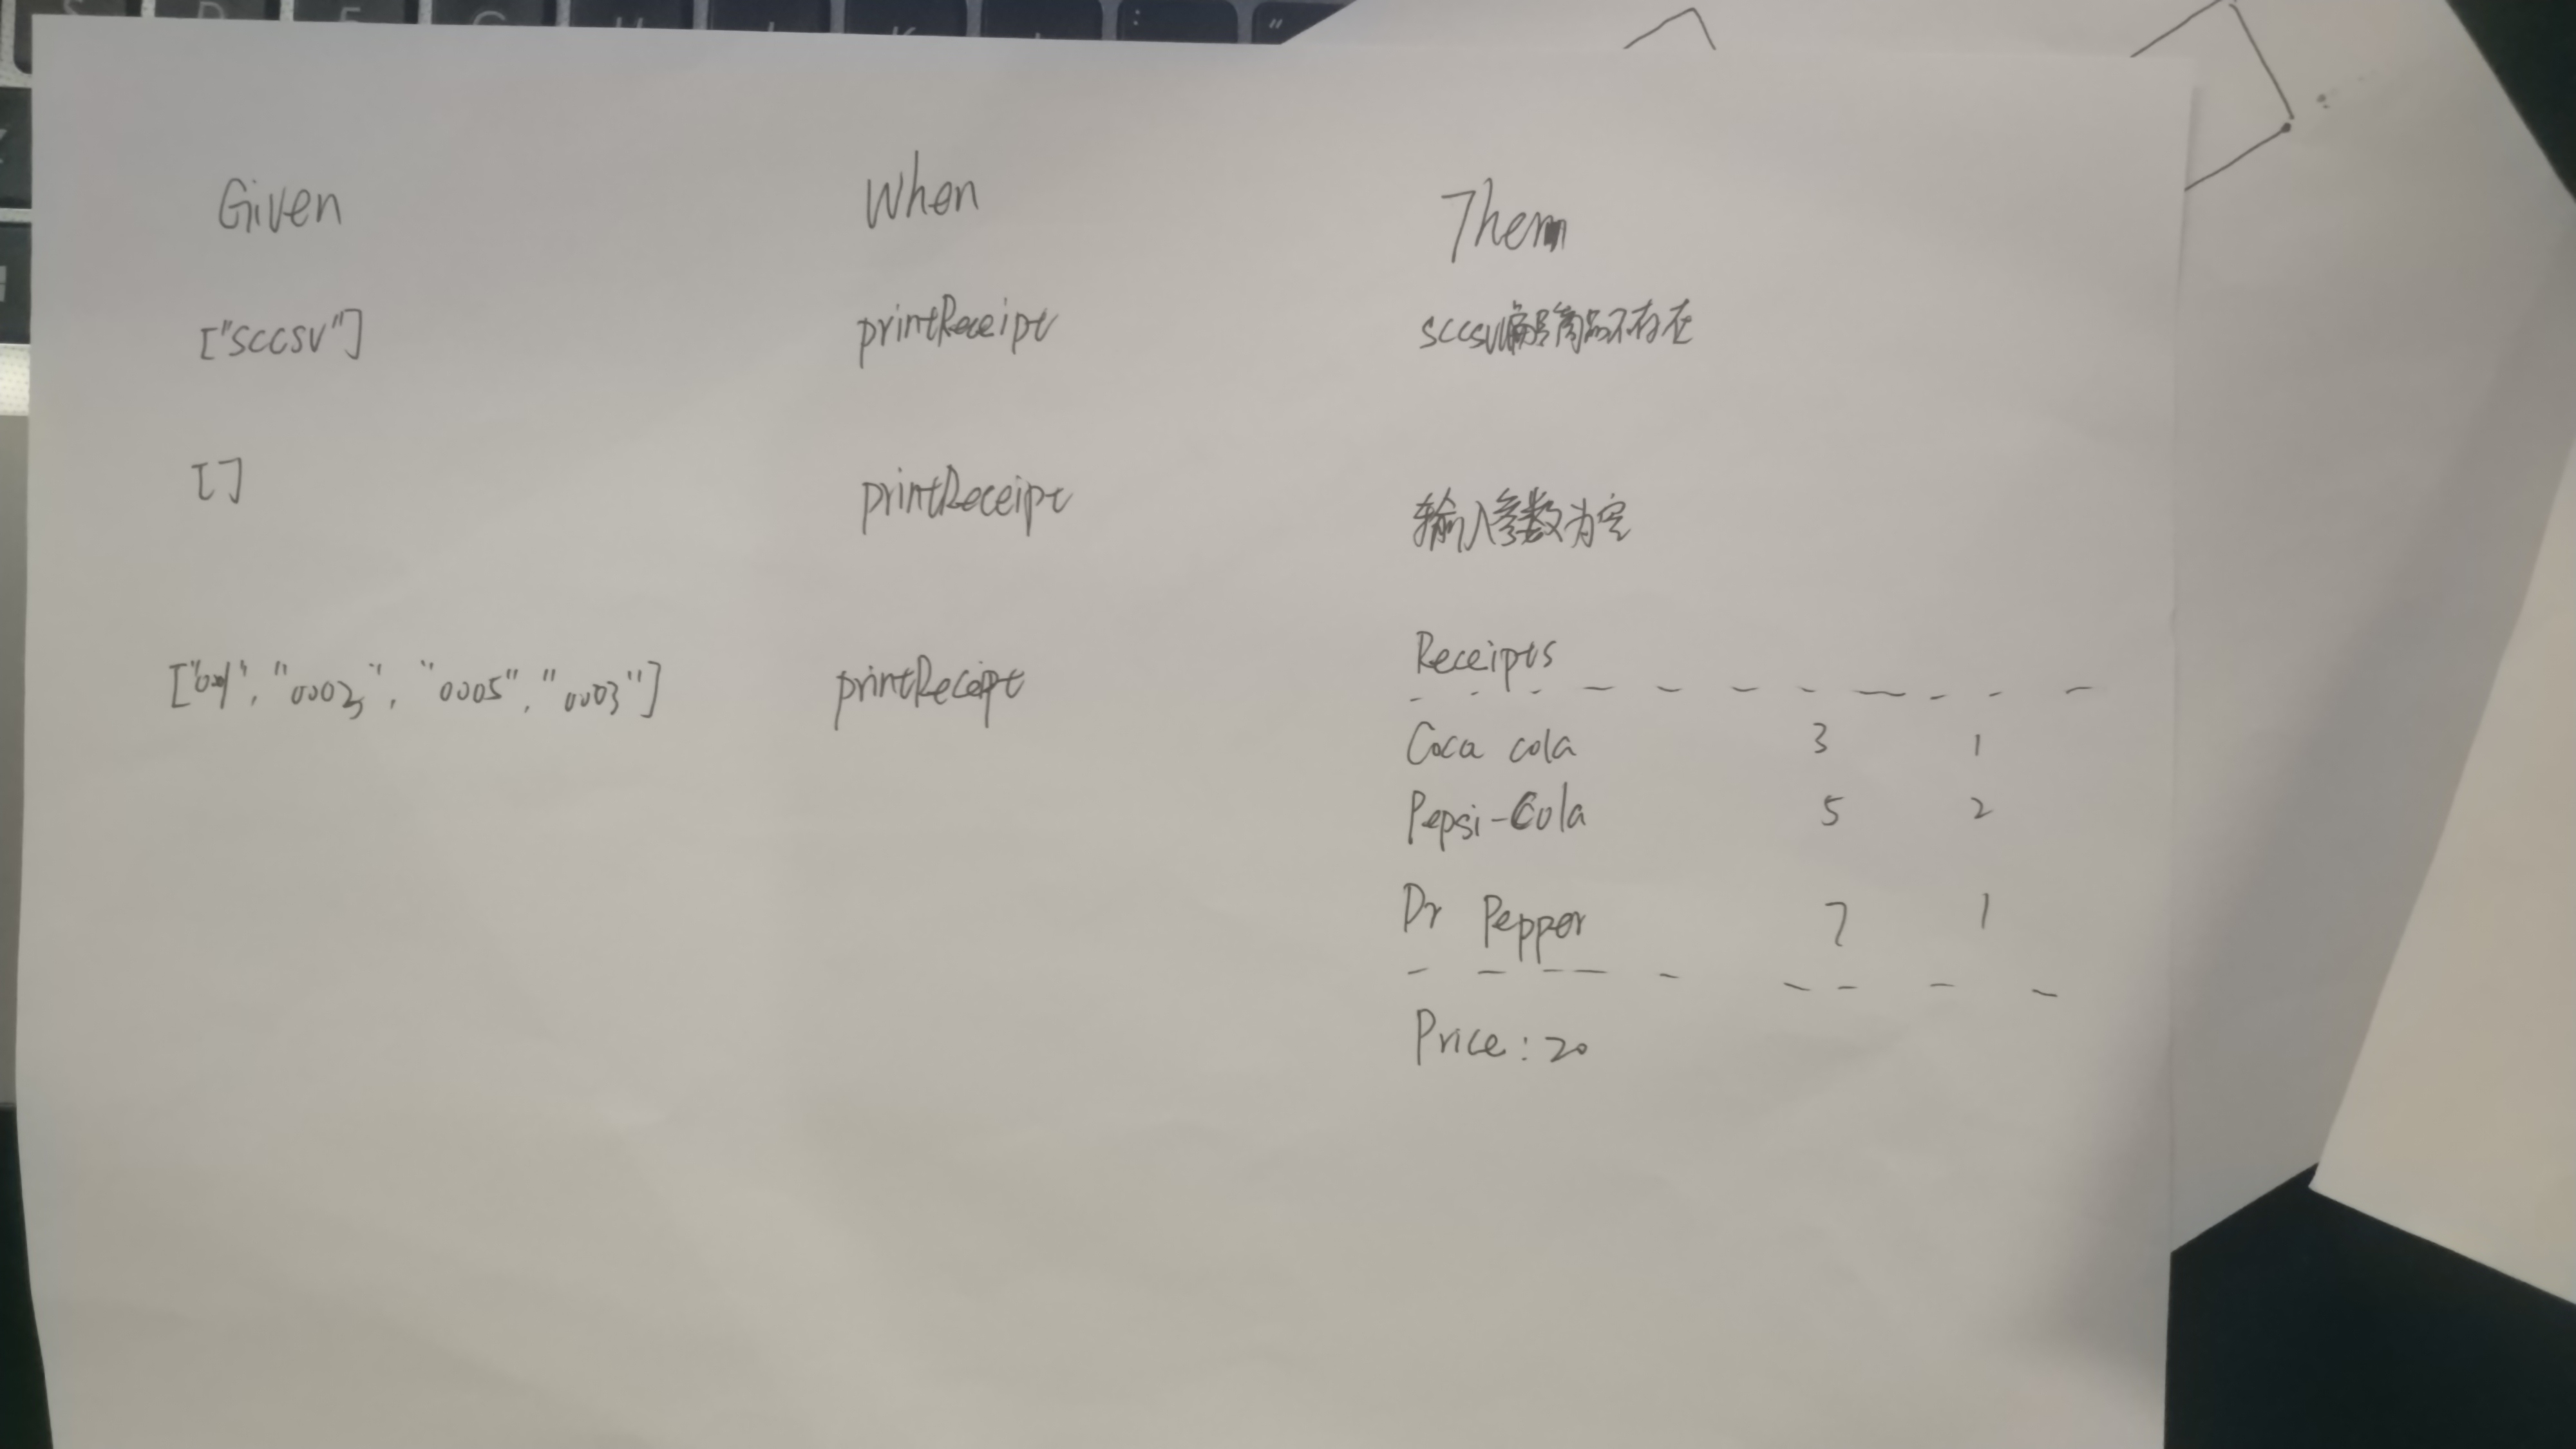 Given When Then
["sccsv"] printReceipt sccsv
[] printReceipt 输入参数为空
["0001", "0003", "0005", "0003"] printReceipt Receipts
Coca cola 3 1
Pepsi-Cola 5 2
Dr Pepper 7 1
Price: 20